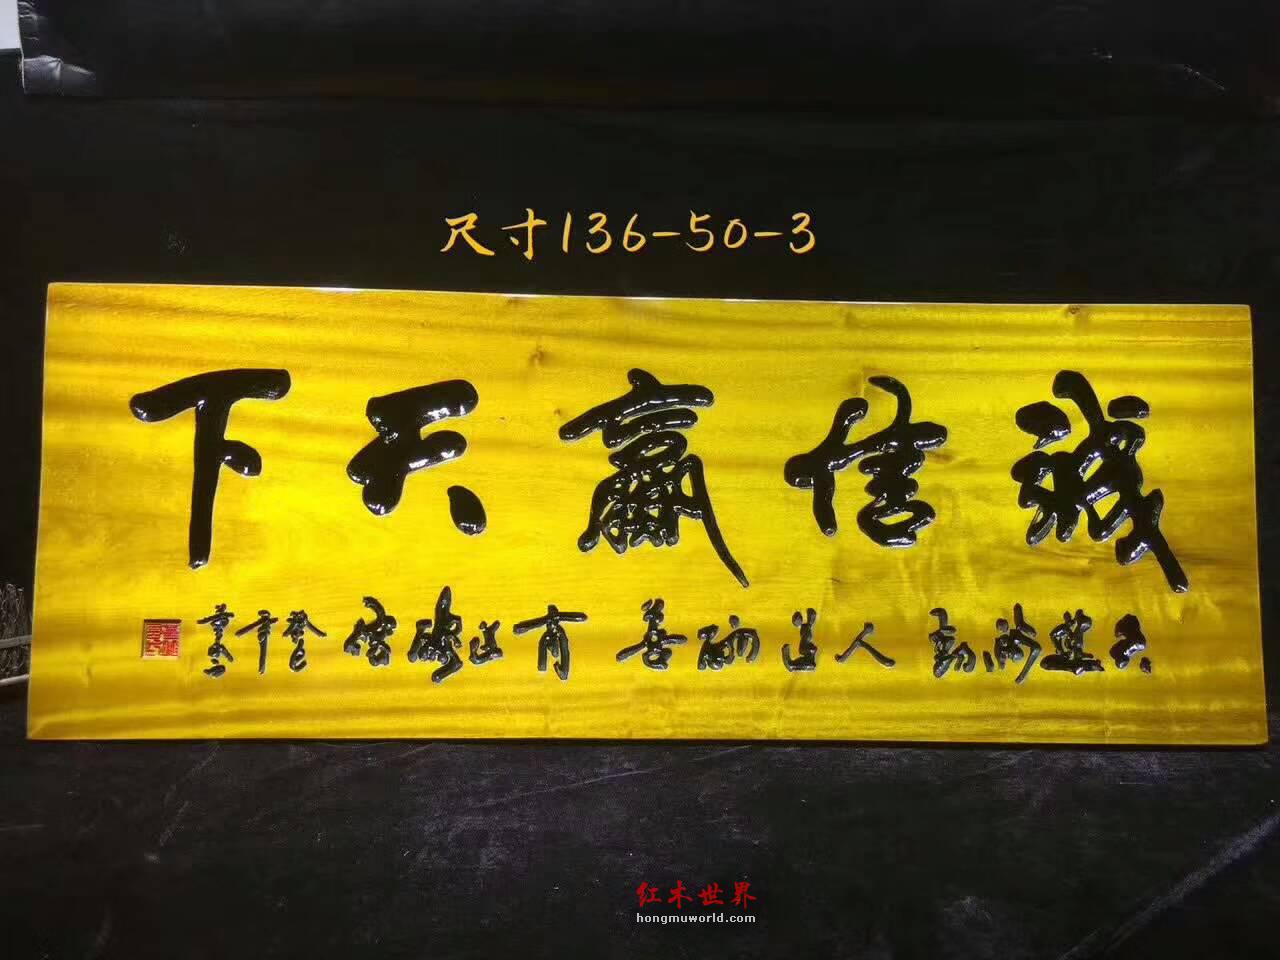 尺寸136-50-3
誠信贏天下
天道酬勤人道酬善商道酬信癸巳年
红木世界
hongmuworld.com